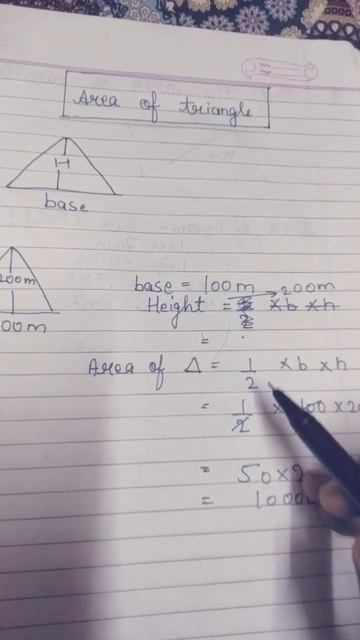 Area of triangle
H
base
200m
00m
base = 100m
200m
Height = × b × h
=
Area of Δ = 1/2 × b × h
= 1/2 × 100 × 20
= 50 × 2
= 1000